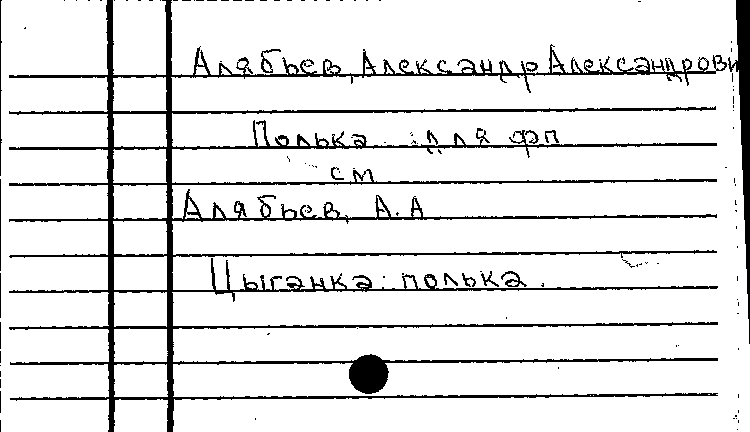 Алябьев, Александр Александрови
Полька для фп
см
Алябьев, А.А
Цыганка: полька.